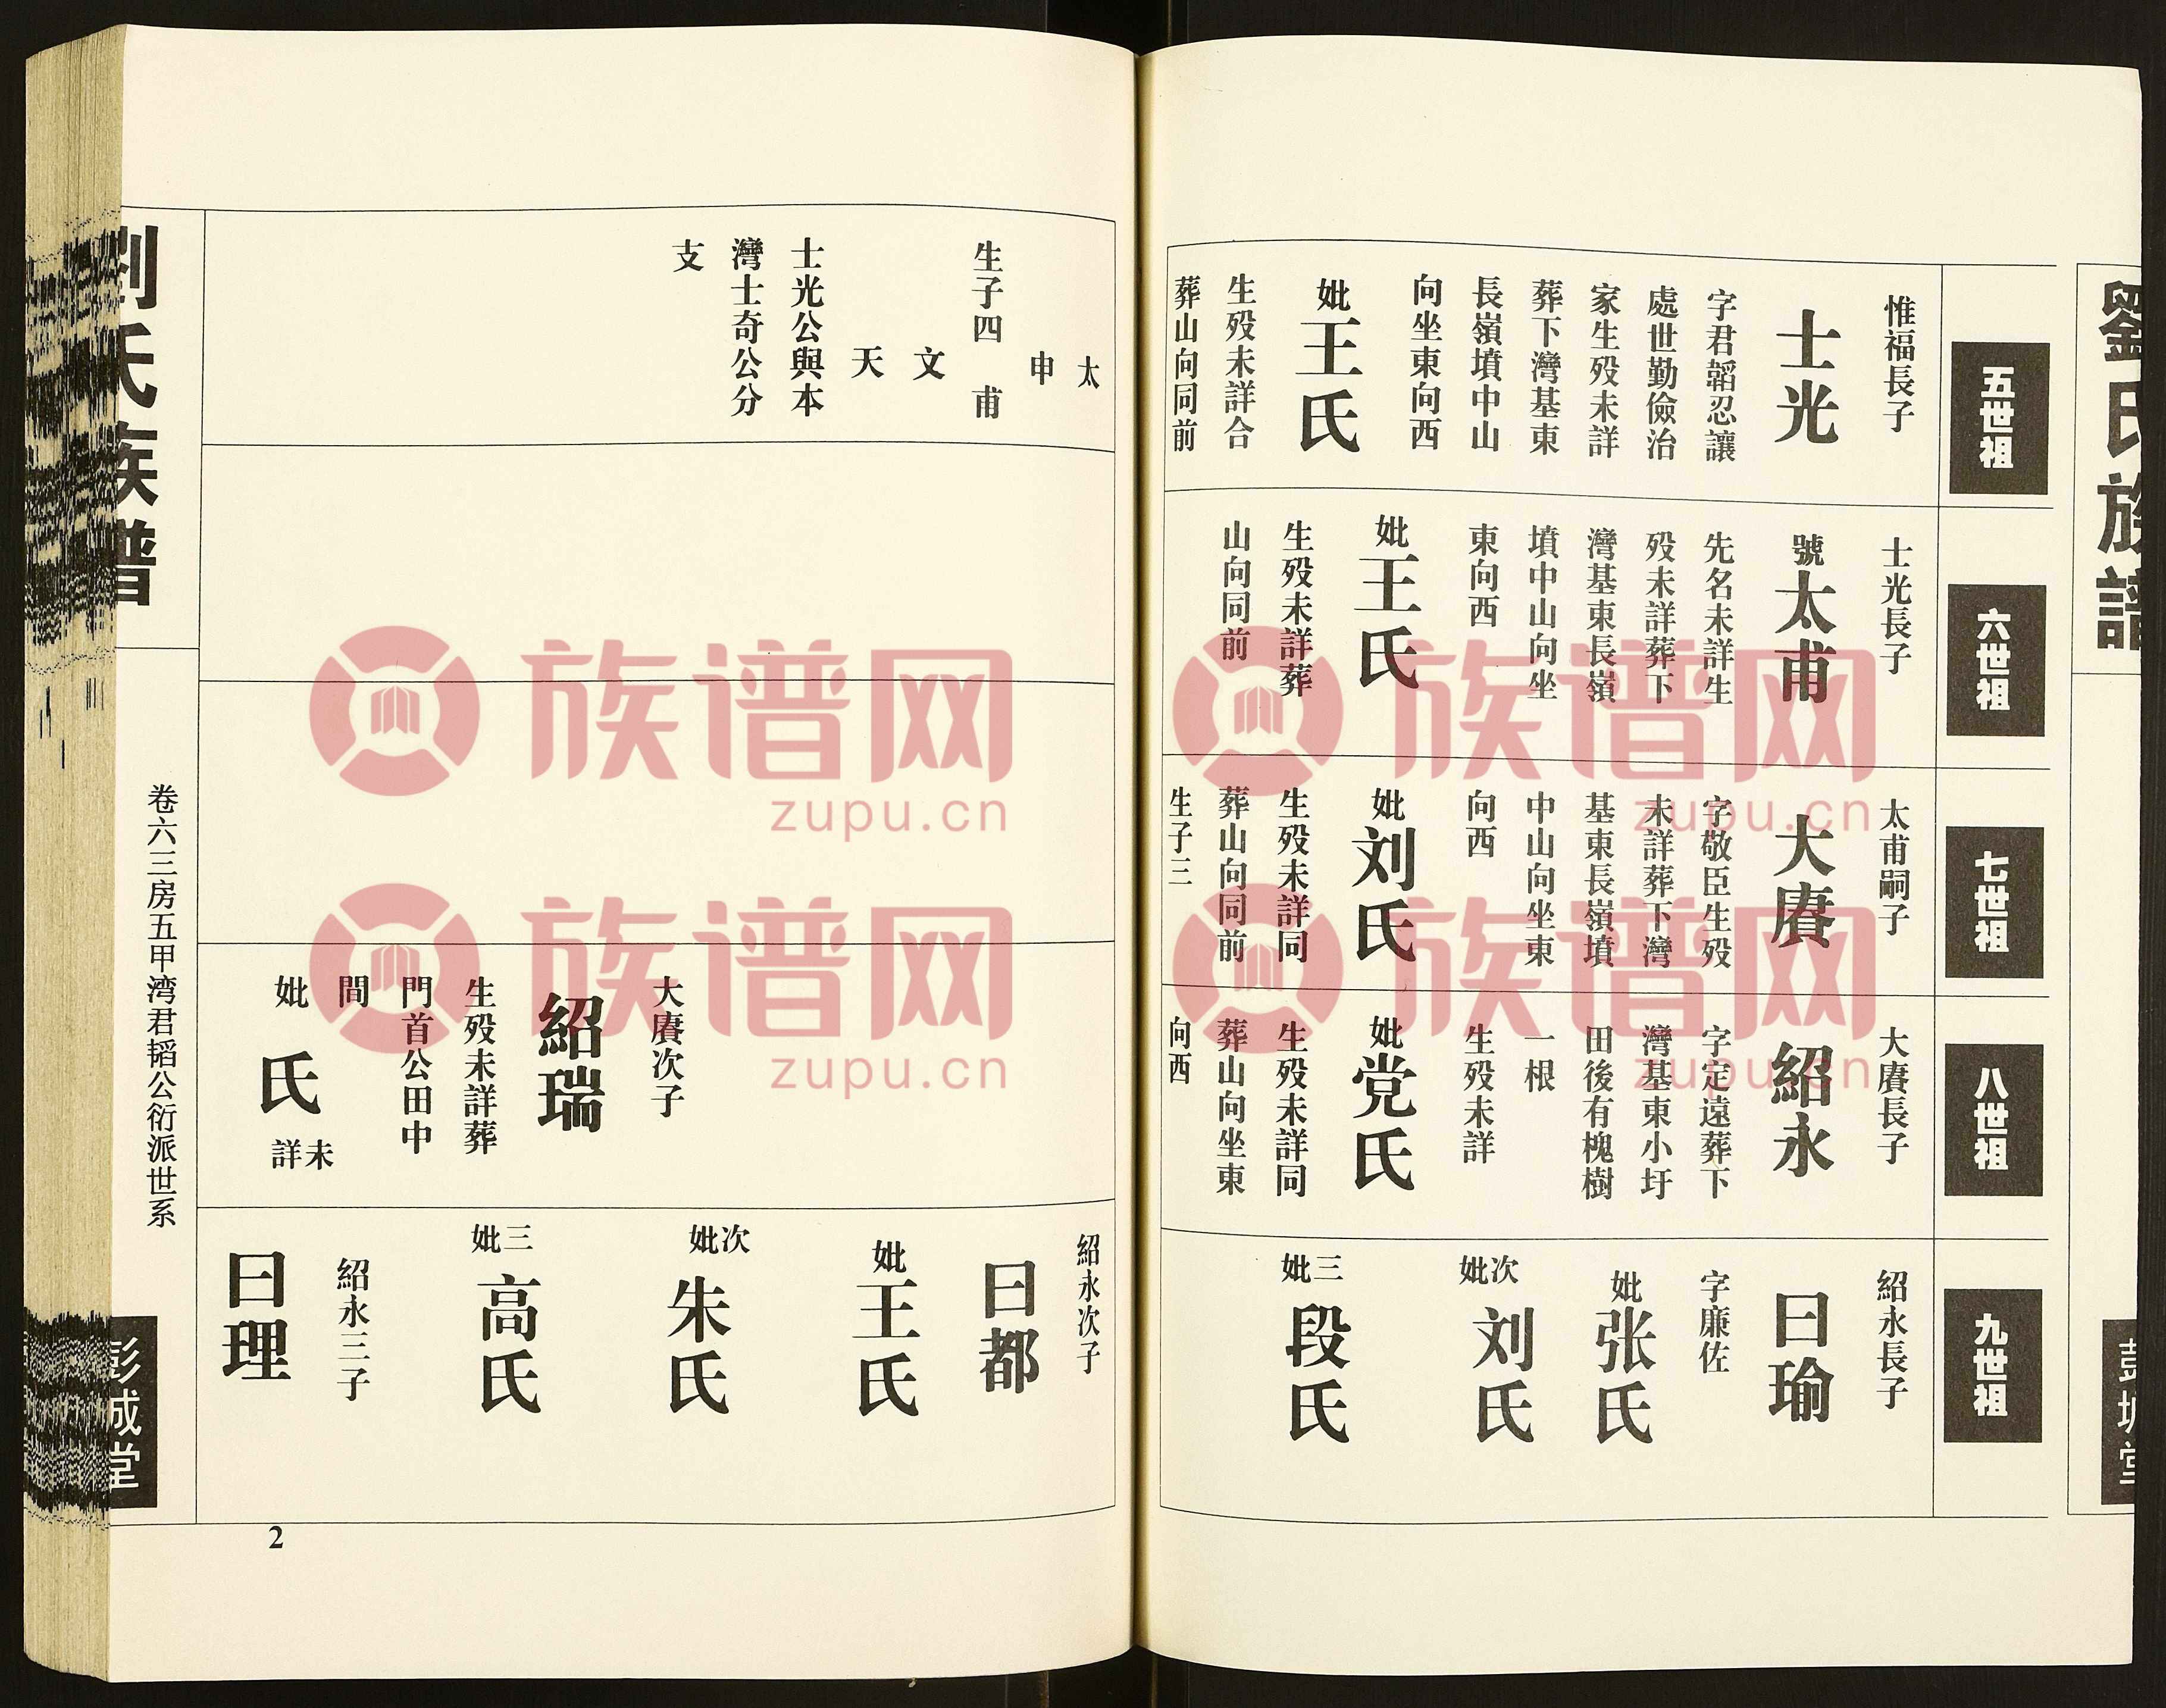 劉氏族譜
彭城堂
五世祖
惟福長子
士光
字君韜忍讓
處世勤儉治
家生殁未詳
葬下灣基東
長嶺墳中山
向坐東向西
妣王氏
生殁未詳合
葬山向同前
六世祖
士光長子
號太甫
先名未詳生
殁未詳葬下
灣基東長嶺
墳中山向坐
東向西
妣王氏
生殁未詳葬
山向同前
七世祖
太甫嗣子
大賡
字敬臣生殁
未詳葬下灣
基東長嶺墳
中山向坐東
向西
妣刘氏
生殁未詳同
葬山向同前
生子三
八世祖
大賡長子
紹永
字定遠葬下
灣基東小圩
田後有槐樹
一根
生殁未詳
妣党氏
生殁未詳同
葬山向坐東
向西
九世祖
紹永長子
曰瑜
字廉佐
妣张氏
次妣刘氏
三妣段氏
太
申
生子四 甫
文
天
士光公與本
灣士奇公分
支
大賡次子
紹瑞
生殁未詳葬
門首公田中
間
妣 氏 未詳
紹永次子
曰都
妣王氏
次妣朱氏
三妣高氏
紹永三子
曰理
劉氏族譜
卷六三房五甲湾君韬公衍派世系
彭城堂
2
族谱网
zupu.cn
族谱网
zupu.cn
族谱网
zupu.cn
族谱网
zupu.cn